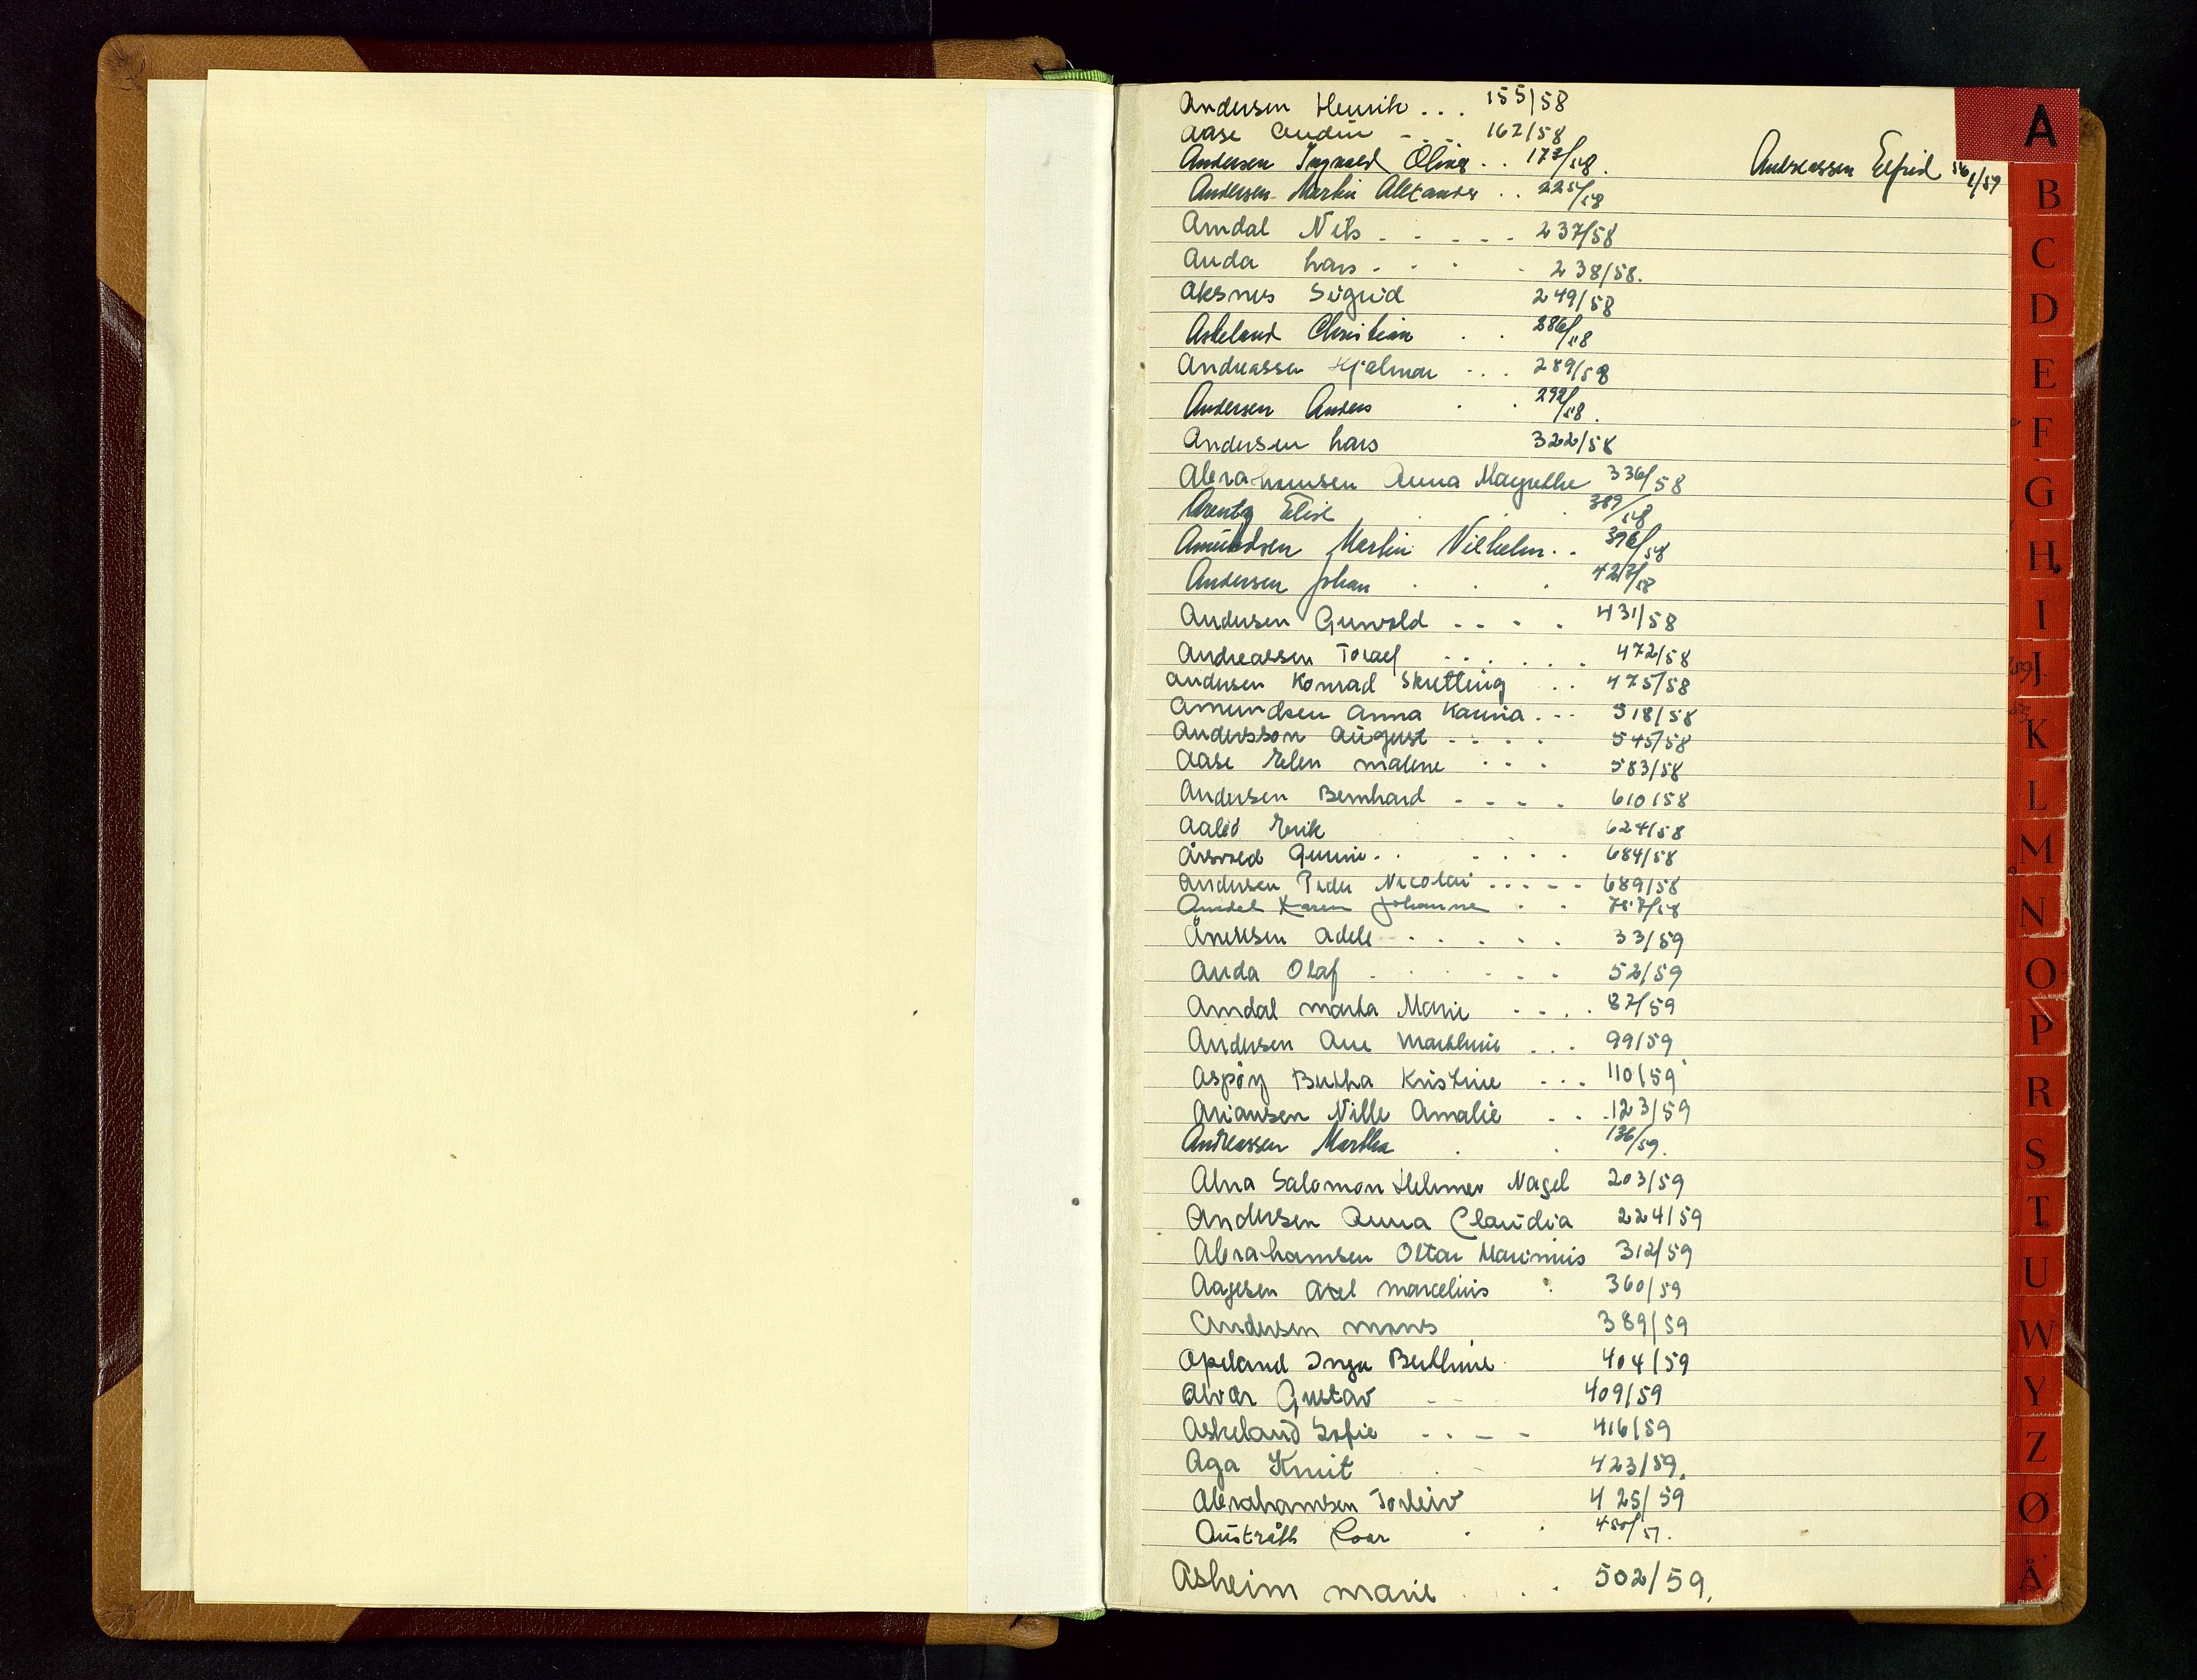 Andersen Henrik ... 155/58
Aase Audin - . . 162/58
Andersen Ingvald Ölina . . 173/58.
Andreassen Elfrid 561/59
Andersen Martin Alexander . . 225/58
Amdal Nils . - . - - 237/58
Anda Lars - . . . 238/58.
Aksnes Sigrid 249/58
Askeland Christian . . 286/58
Andreassen Hjalmar - . . 289/58
Andersen Anders . . 292/58.
Andersen Lars 322/58
Abrahamsen Anna Magrethe 336/58
Arentz Elise . . . 389/58
Amundsen Martin Vilhelm . . 396/58
Andersen Johan . . . 427/58
Andersen Gunvald . . . . 431/58
Andreassen Torael . . . . . . 472/58
Andersen Konrad Skretting . . 475/58
Amundsen Anna Karina . - - 518/58
Andersson August . . . . 545/58
Aase Elen Malene . . . 583/58
Andersen Bernhard - . - . 610/58
Aalid Erik 624/58
Årsvold Gunni . . . . . . 684/58
Andersen Peder Nicolai . . . - - 689/58
Amdal Karen Johanne . . 757/58
Ånensen Adele . . . . . 33/59
Anda Olaf . . . - - - 52/59
Amdal Marta Marie - . . . 87/59
Andersen Ane Marthine . . . 99/59
Aspöy Bertha Kristine - . . 110/59
Ariansen Nille Amalie . . . 123/59
Andreassen Martha . . 136/59.
Alna Salomon Helmer Nagel 203/59
Andersen Anna Claudia 224/59
Abrahamsen Ottar Marinius 312/59
Aagesen Axel Marcelius . 360/59
Andersen Mons 389/59
Opeland Inga Berthine 404/59
Alvær Gustav - - 409/59
Askeland Sofie . . - - 416/59
Aga Knut . - 423/59.
Abrahamsen Torleiv 425/59
Austråth Roar . . 450/59.
Åsheim Marie . . . 502/59.
A
B
C
D
E
F
G
H
I
J
K
L
M
N
O
P
R
S
T
U
W
Y
Z
Ø
Å